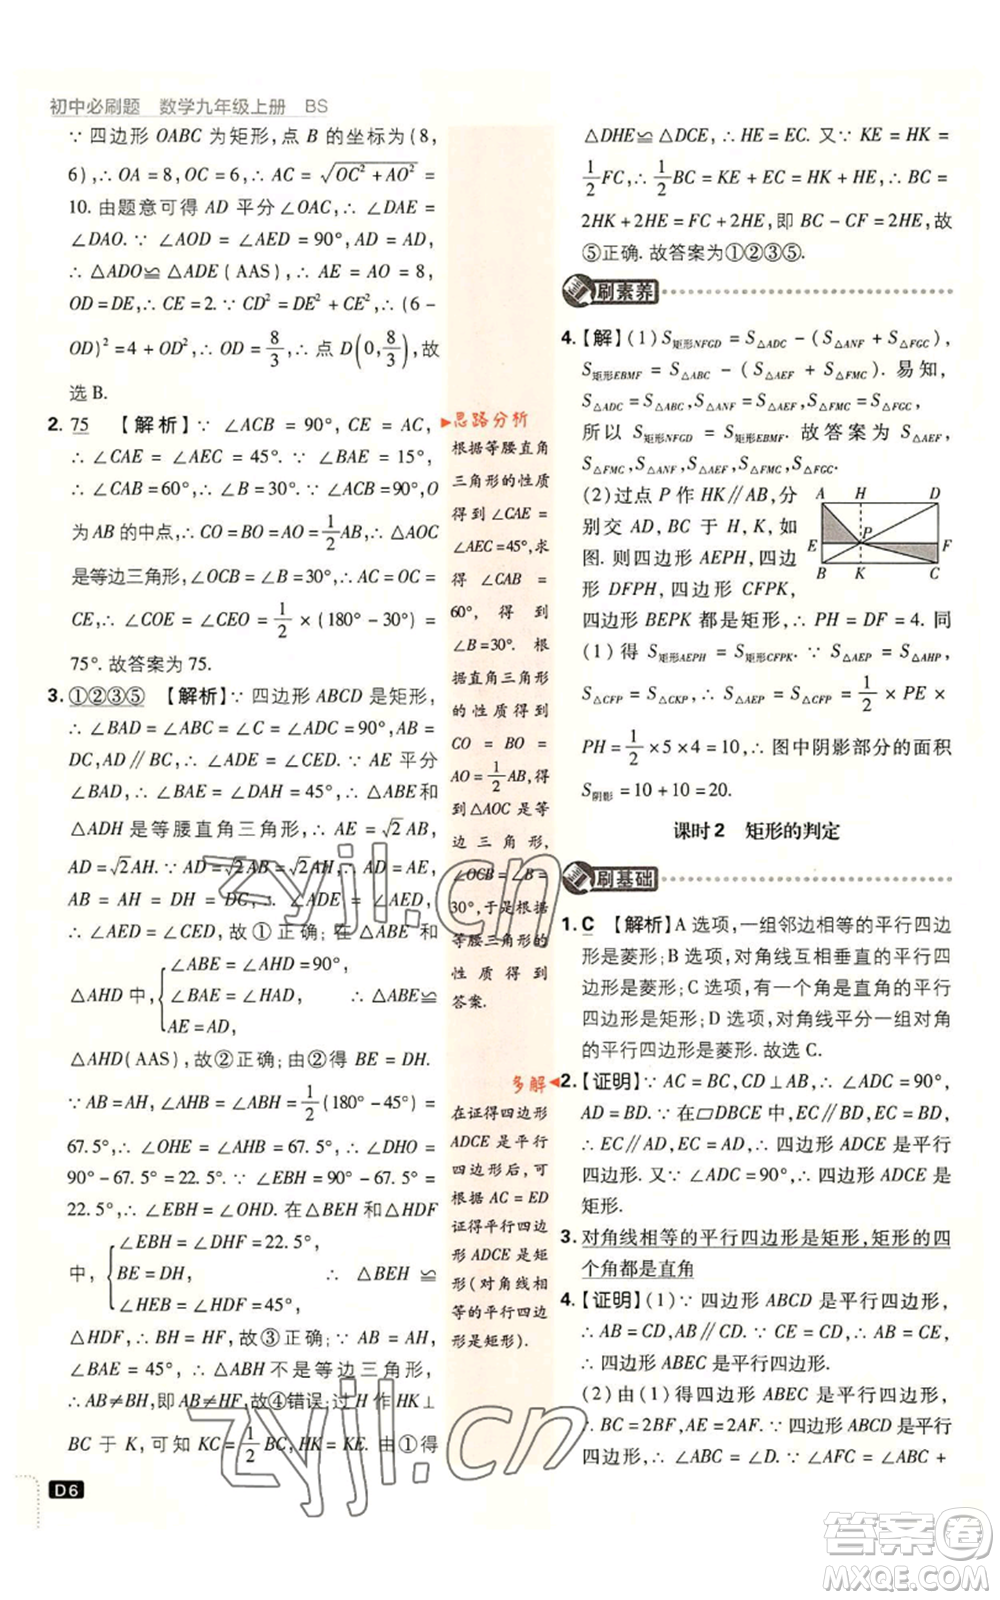 初中必刷题 数学九年级上册 BS
∵ 四边形 OABC 为矩形,点 B 的坐标为(8,
6),∴ OA = 8,OC = 6,∴ AC = √(OC² + AO²) =
10. 由题意可得 AD 平分∠OAC,∴ ∠DAE =
∠DAO. ∵ ∠AOD = ∠AED = 90°,AD = AD,
∴ △ADO≌△ADE(AAS),∴ AE = AO = 8,
OD = DE,∴ CE = 2. ∵ CD² = DE² + CE²,∴ (6 −
OD)² = 4 + OD²,∴ OD = 8/3,∴ 点 D(0, 8/3),故
选 B.
2. 75 【解析】∵ ∠ACB = 90°,CE = AC,
∴ ∠CAE = ∠AEC = 45°. ∵ ∠BAE = 15°,
∴ ∠CAB = 60°,∴ ∠B = 30°. ∵ ∠ACB = 90°,O
为 AB 的中点,∴ CO = BO = AO = 1/2 AB,∴ △AOC
是等边三角形,∠OCB = ∠B = 30°,∴ AC = OC =
CE,∴ ∠COE = ∠CEO = 1/2 × (180° − 30°) =
75°. 故答案为 75.
3. ①②③⑤ 【解析】∵ 四边形 ABCD 是矩形,
∴ ∠BAD = ∠ABC = ∠C = ∠ADC = 90°,AB =
DC,AD∥BC,∴ ∠ADE = ∠CED. ∵ AE 平分
∠BAD,∴ ∠BAE = ∠DAH = 45°,∴ △ABE和
△ADH 是等腰直角三角形,∴ AE = √2AB,
AD = √2AH. ∵ AD = √2AB = √2AH,∴ AD = AE,
AB = AH = DH = DC,∴ ∠ADE = ∠AED,
∴ ∠AED = ∠CED,故①正确;在△ABE 和
∠ABE = ∠AHD = 90°,
△AHD 中, ∠BAE = ∠HAD, ∴ △ABE≌
AE = AD,
△AHD(AAS),故②正确;由②得 BE = DH.
∵ AB = AH,∴ ∠AHB = ∠ABH = 1/2(180° − 45°) =
67.5°,∴ ∠OHE = ∠AHB = 67.5°,∴ ∠DHO =
90° − 67.5° = 22.5°. ∵ ∠EBH = 90° − 67.5° =
22.5°,∴ ∠EBH = ∠OHD. 在△BEH 和△HDF
∠EBH = ∠DHF = 22.5°,
中, BE = DH, ∴ △BEH ≌
∠HEB = ∠HDF = 45°,
△HDF,∴ BH = HF,故③正确;∵ AB = AH,
∠BAE = 45°,∴ △ABH 不是等边三角形,
∴ AB≠BH,即 AB≠HF,故④错误;过 H 作 HK⊥
BC 于 K,可知 KC = 1/2 BC,HK = KE. 由①得
D6
思路分析
根据等腰直角
三角形的性质
得到∠CAE =
∠AEC = 45°,求
得 ∠CAB =
60°,得到
∠B = 30°. 根
据直角三角形
的性质得到
CO = BO =
AO = 1/2 AB,得
到△AOC 是等
边三角形,
∠OCB = ∠B =
30°,于是根据
等腰三角形的
性质得到
答案.
多解
在证得四边形
ADCE 是平行
四边形后,可
根据 AC = ED
证得平行四边
形 ADCE 是矩
形(对角线相
等的平行四边
形是矩形).
△DHE≌△DCE,∴ HE = EC. 又∵ KE = HK =
1/2 FC,∴ 1/2 BC = KE + EC = HK + HE,∴ BC =
2HK + 2HE = FC + 2HE,即 BC − CF = 2HE,故
⑤正确. 故答案为①②③⑤.
刷素养
4.【解】(1) S矩形NFGD = S△ADC − (S△ANF + S△FGC),
S矩形EBMF = S△ABC − (S△AEF + S△FMC). 易知,
S△ADC = S△ABC,S△ANF = S△AEF,S△FMC = S△FGC,
所以 S矩形NFGD = S矩形EBMF. 故答案为 S△AEF,
S△FMC,S△ANF,S△AEF,S△FMC,S△FGC.
(2)过点 P 作 HK∥AB,分
别交 AD,BC 于 H,K,如
图. 则四边形 AEPH,四边
形 DFPH,四边形 CFPK,
四边形 BEPK 都是矩形,∴ PH = DF = 4. 同
(1)得 S矩形AEPH = S矩形CFPK. ∵ S△AEP = S△AHP,
S△CFP = S△CKP,∴ S△AEP = S△CFP = 1/2 × PE ×
PH = 1/2 × 5 × 4 = 10,∴ 图中阴影部分的面积
S阴影 = 10 + 10 = 20.
A H D
E P F
B K C
课时2 矩形的判定
刷基础
1. C 【解析】A 选项,一组邻边相等的平行四边
形是菱形;B 选项,对角线互相垂直的平行四
边形是菱形;C 选项,有一个角是直角的平行
四边形是矩形;D 选项,对角线平分一组对角
的平行四边形是菱形. 故选 C.
2.【证明】∵ AC = BC,CD⊥AB,∴ ∠ADC = 90°,
AD = BD. ∵ 在▱DBCE 中,EC∥BD,EC = BD,
∴ EC∥AD,EC = AD,∴ 四边形 ADCE 是平行
四边形. 又∵ ∠ADC = 90°,∴ 四边形 ADCE 是
矩形.
3. 对角线相等的平行四边形是矩形,矩形的四
个角都是直角
4.【证明】(1)∵ 四边形 ABCD 是平行四边形,
∴ AB = CD,AB∥CD. ∵ EC = CD,∴ AB = EC,
∴ 四边形 ABEC 是平行四边形.
(2)由(1)得四边形 ABEC 是平行四边形,
∴ BC = 2BF,AE = 2AF. ∵ 四边形 ABCD 是平行
四边形,∴ ∠ABC = ∠D. ∵ ∠AFC = ∠ABC +
zyjl.cn
zyjl.cn
答案圈
MXQE.COM